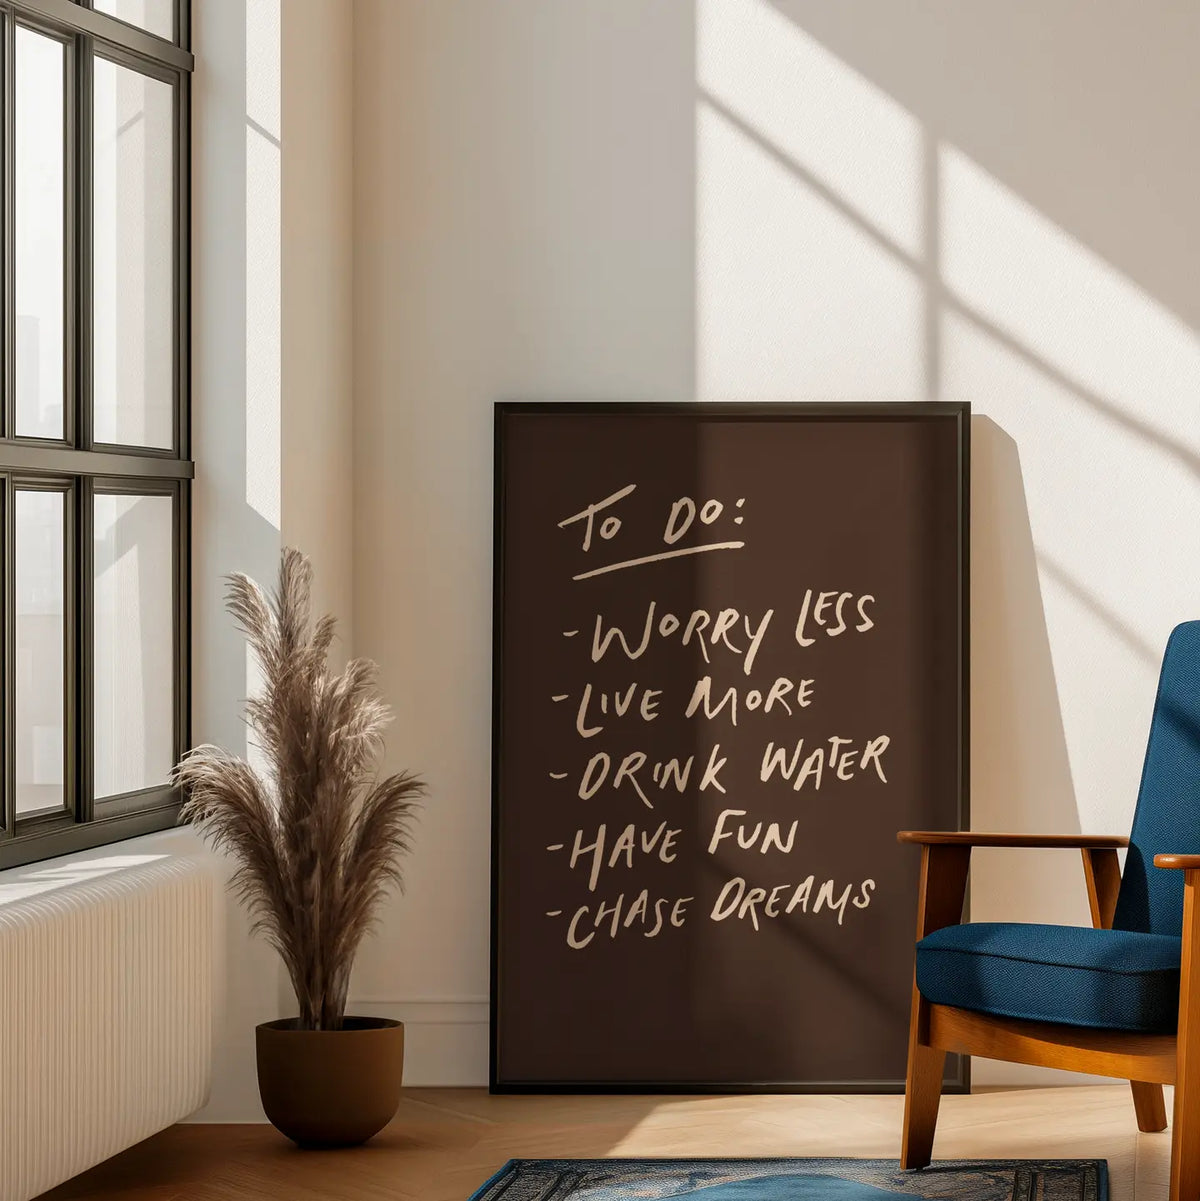 To Do:
- WORRY LESS
- LIVE MORE
- DRINK WATER
- HAVE FUN
- CHASE DREAMS